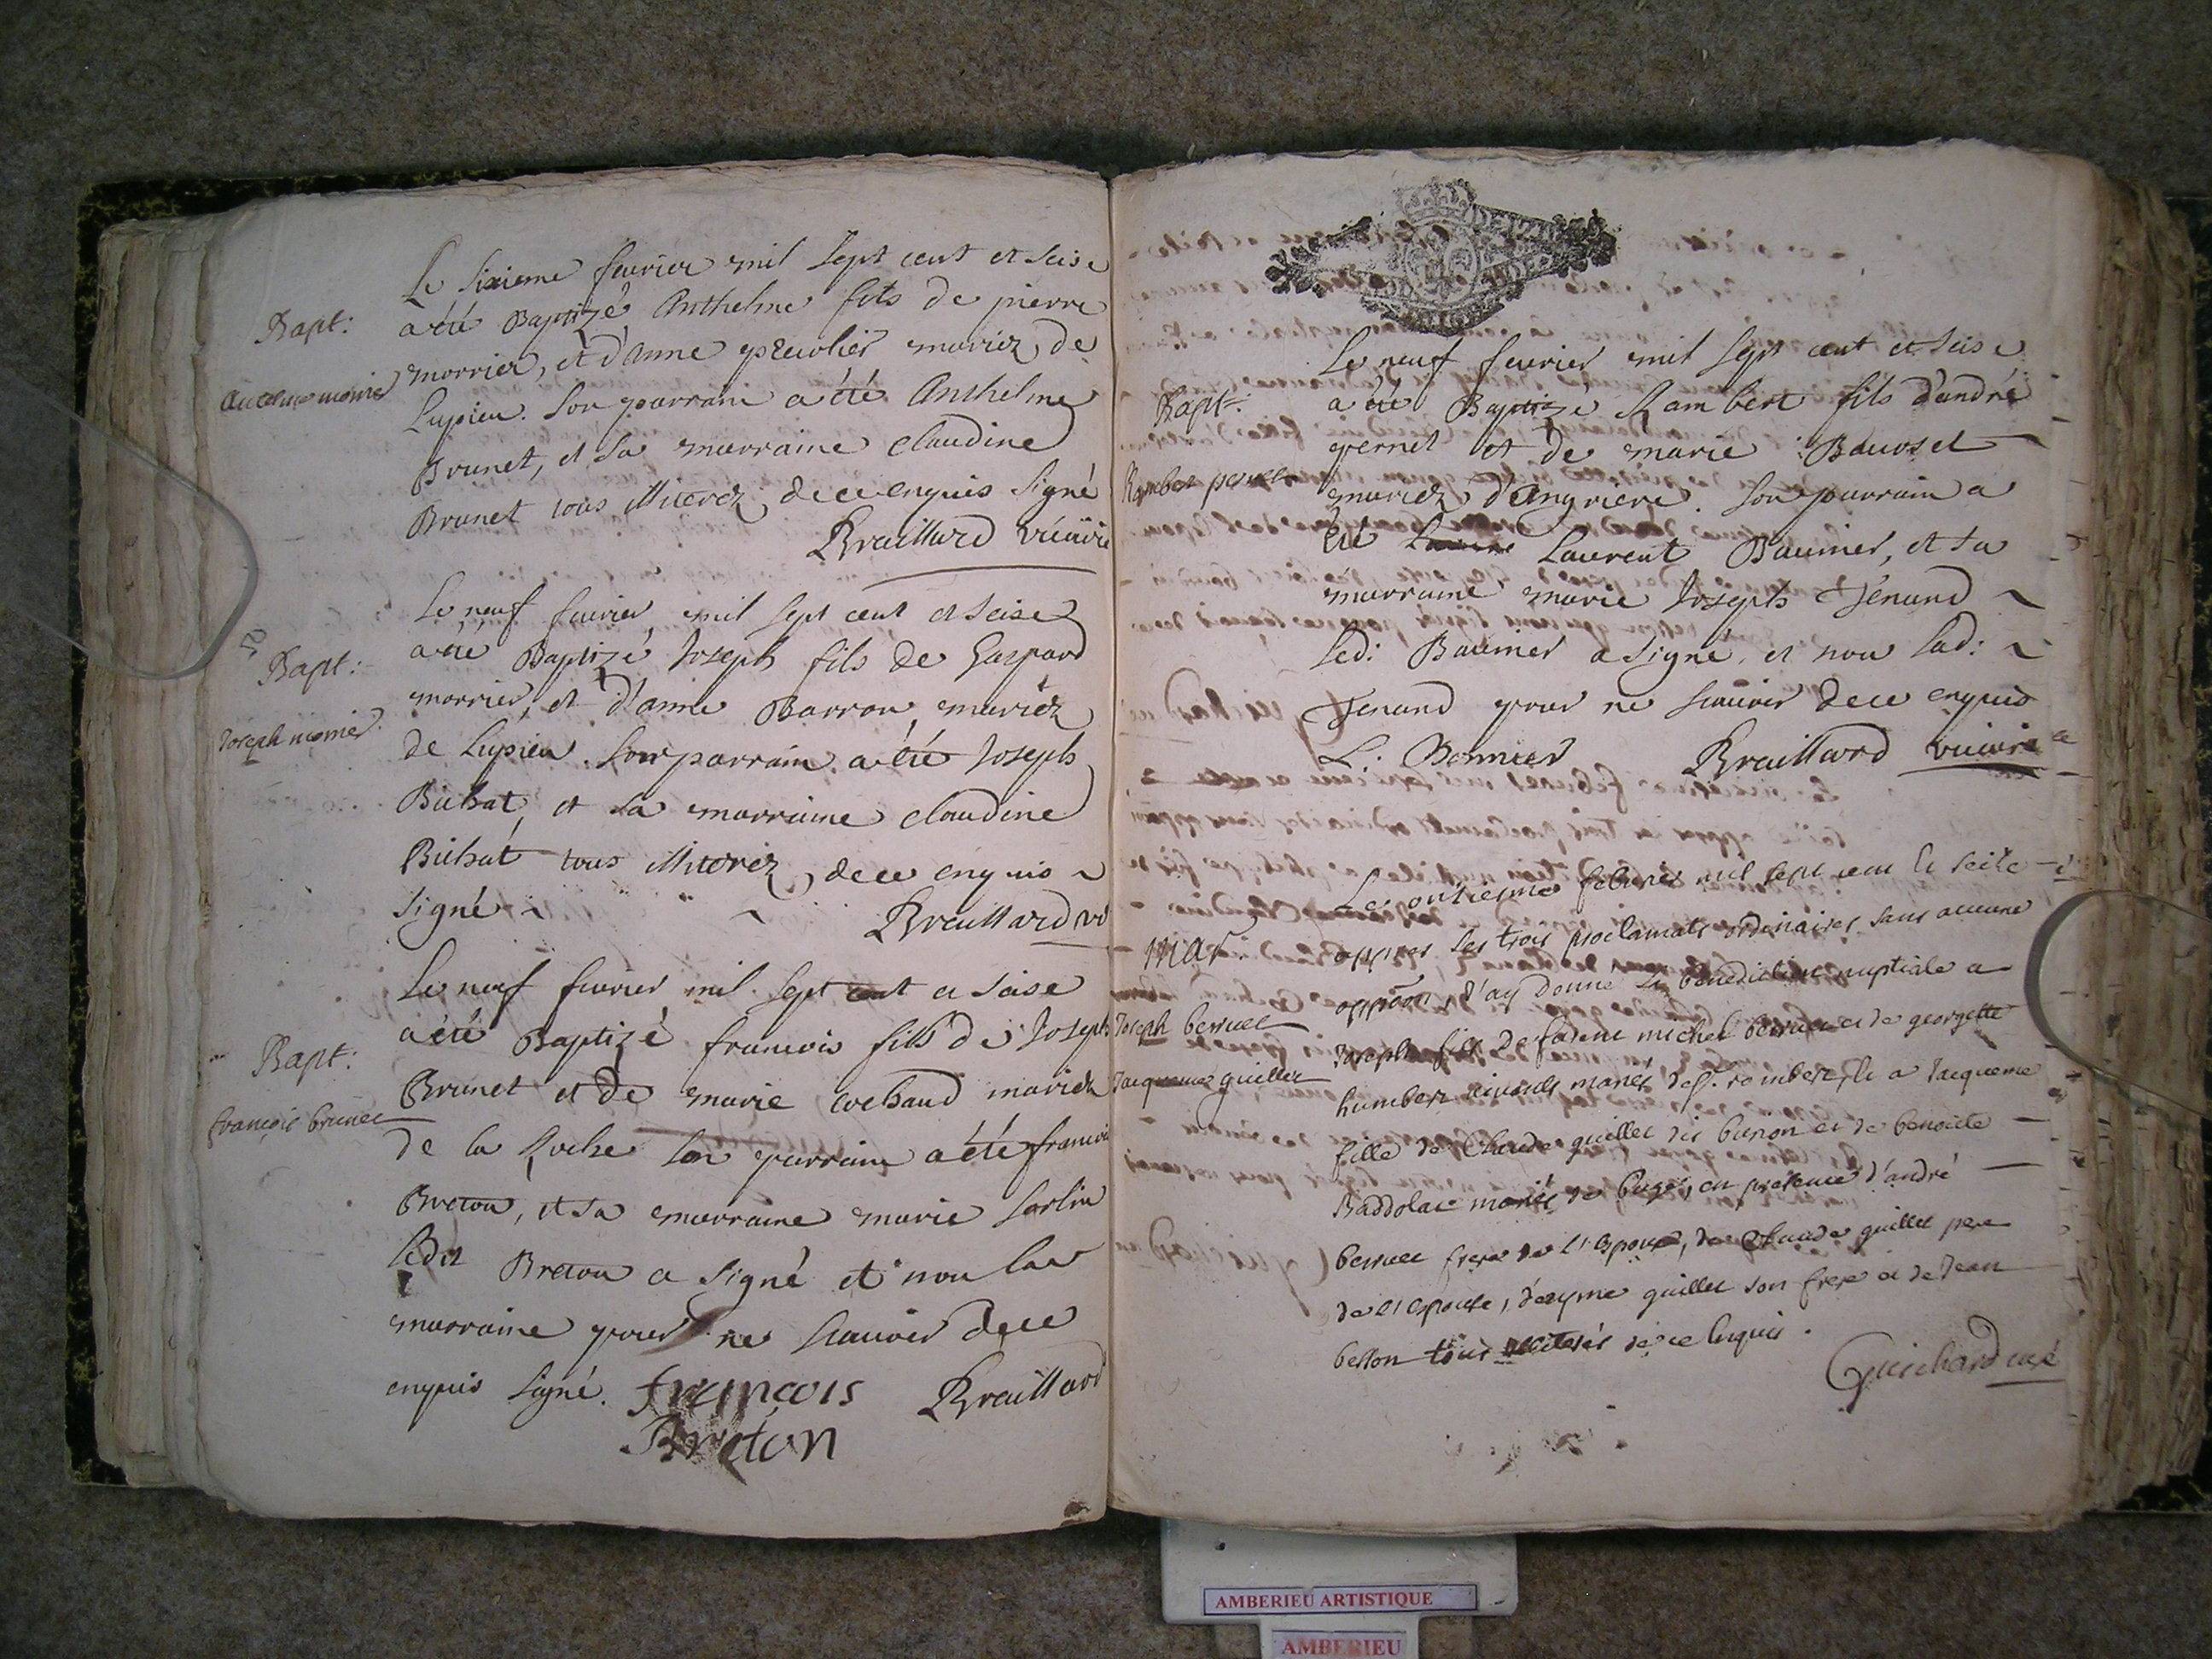 Le sixieme feurier mil sept cent et seise
Bapt:
a été Baptizé Anthelme fils de pierre
morrier, et d'anne mariez de
Lupieu. Son parrain a été Anthelme
Brunet, et sa marraine claudine
Brunet tous illiterez, de ce enquis signé
Braillard vicaire
Le neuf feurier mil sept cent et seise
Bapt:
a été Baptizé Joseph fils de Gaspard
morrier, et d'anne Barron mariéz
Joseph morrier
de Lupieu. Son parrain a été Joseph
Bichat, et sa marraine claudine
Bichat tous illiterez, de ce enquis
signé Braillard vi
Le neuf feurier mil sept cent et seise
a été Baptizé francois fils de Joseph
Bapt:
Brunet et de marie cochaud mariez
françois brunet
de la Roche son parrain a été francois
Breton, et sa marraine marie sorlin
ledit Breton a signé et non la
marraine pour ne scauoir de ce
enquis signé. françois Braillard
Breton
Le neuf feurier mil sept cent et seise
Bapt:
a été Baptizé Rambert fils d'andré
pernet et de marie
Rambert pernet
mariez d'angriere. Son parrain a
été Laurent Baumier, et sa
marraine marie Joseph Tenand
led: Baumier a signé, et non lad:
Tenand pour ne scauoir de ce enquis
L: Bomier Braillard vicaire
Le onzieme febvrier mil sept cent et seize
mar
appres les trois proclamats ordinaires sans aucune
oppõon, J'ay donné la benediction nuptiale a
Joseph berruet
Joseph fils de fadeut michel berruet et de georgette
Jacqueme guillet
humbert viuants mariés de st. rambert, et a Jacqueme
fille de Claude guillet dit buron et de benoite
Baddolat mariés de buges, en presence d'andré
berruet frere de l'espoux, de Claude guillet pere
de l'espouse, d'ayme guillet son frere et de Jean
bellon tous illiterés de ce enquis.
Guichard curé
AMBERIEU ARTISTIQUE
AMBERIEU